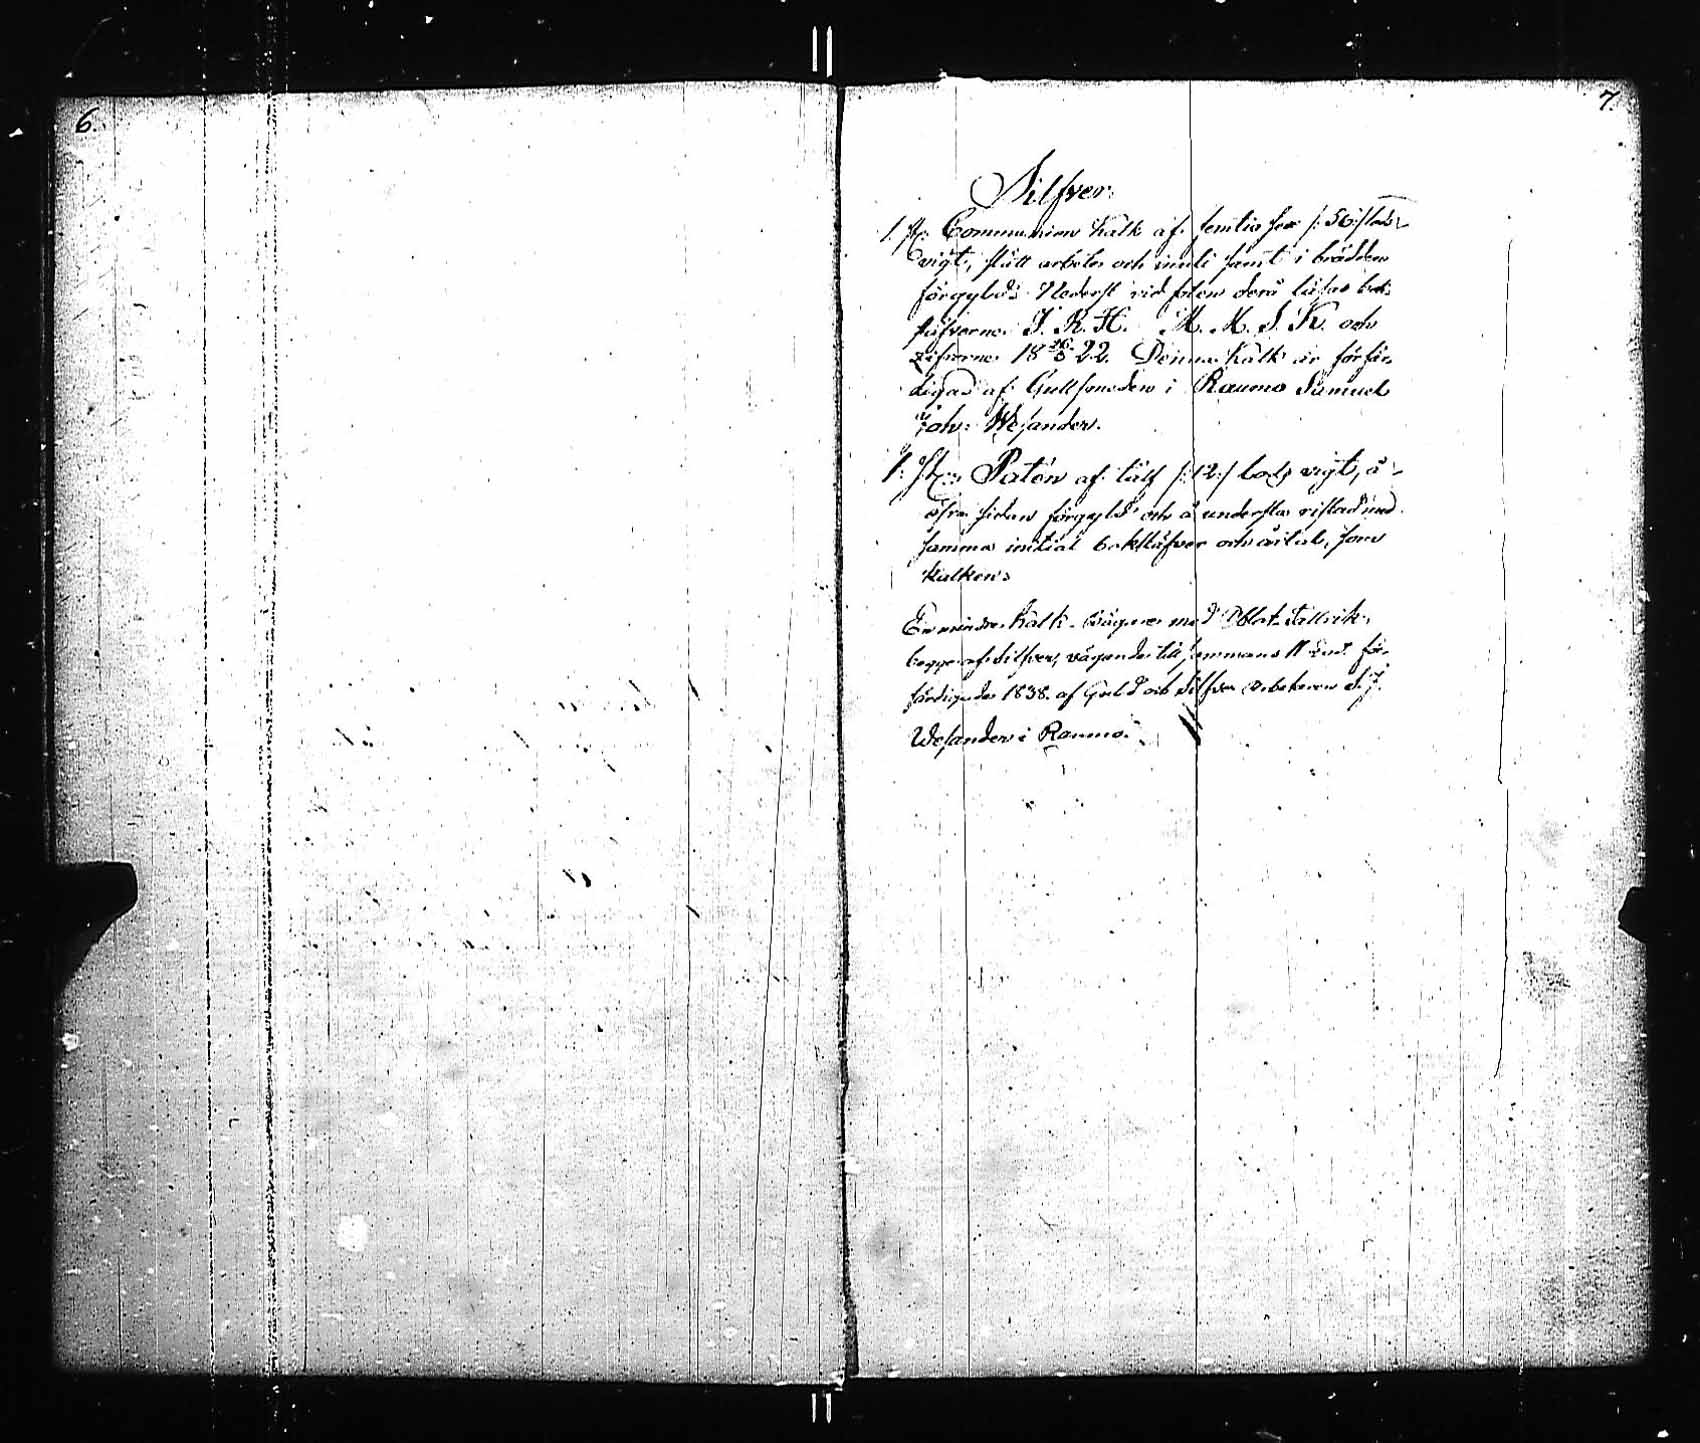 6.
7.
Silfver.
1. st: Communion Kalk af femtio sex /: 56 :/ lods
vigt, slätt arbete och inuti samt i brädden
förgyld. Nederst vid foten derå läsas bok-
stäfverne J. K. H. M. M. S. K. och
zifrorne 18 22. Denna Kalk är förfär-
digad af Gullsmeden i Raumo Samuel
Joh: Wesander.
1. St: Patén af tålf /: 12 :/ lods vigt, å
öfra sidan förgyld och å understa ristad med
samma initial bokstäfver och årtal, som
kalken.
En mindre Kalk med Oblat-tallrik,
begge af silfver, vägande tillsammans 11 lod. för-
färdigade 1838. af Guld och Silfver arbetaren S. J.
Wesander i Raumo.